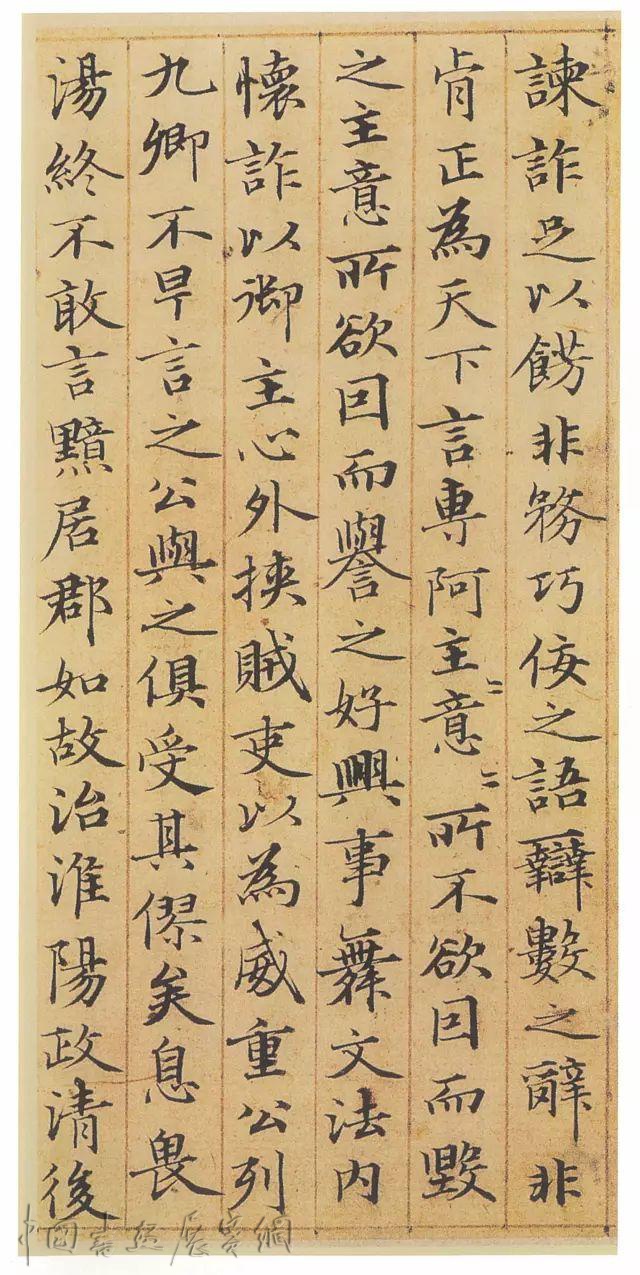 諫詐足以餝非務巧佞之語辯數之辭非
肯正為天下言專阿主意〻所不欲因而毀
之主意所欲因而譽之好興事舞文法内
懷詐以御主心外挾賊吏以為威重公列
九卿不早言之公與之俱受其僇矣息畏
湯終不敢言黯居郡如故治淮陽政清後
中國書法展賽網